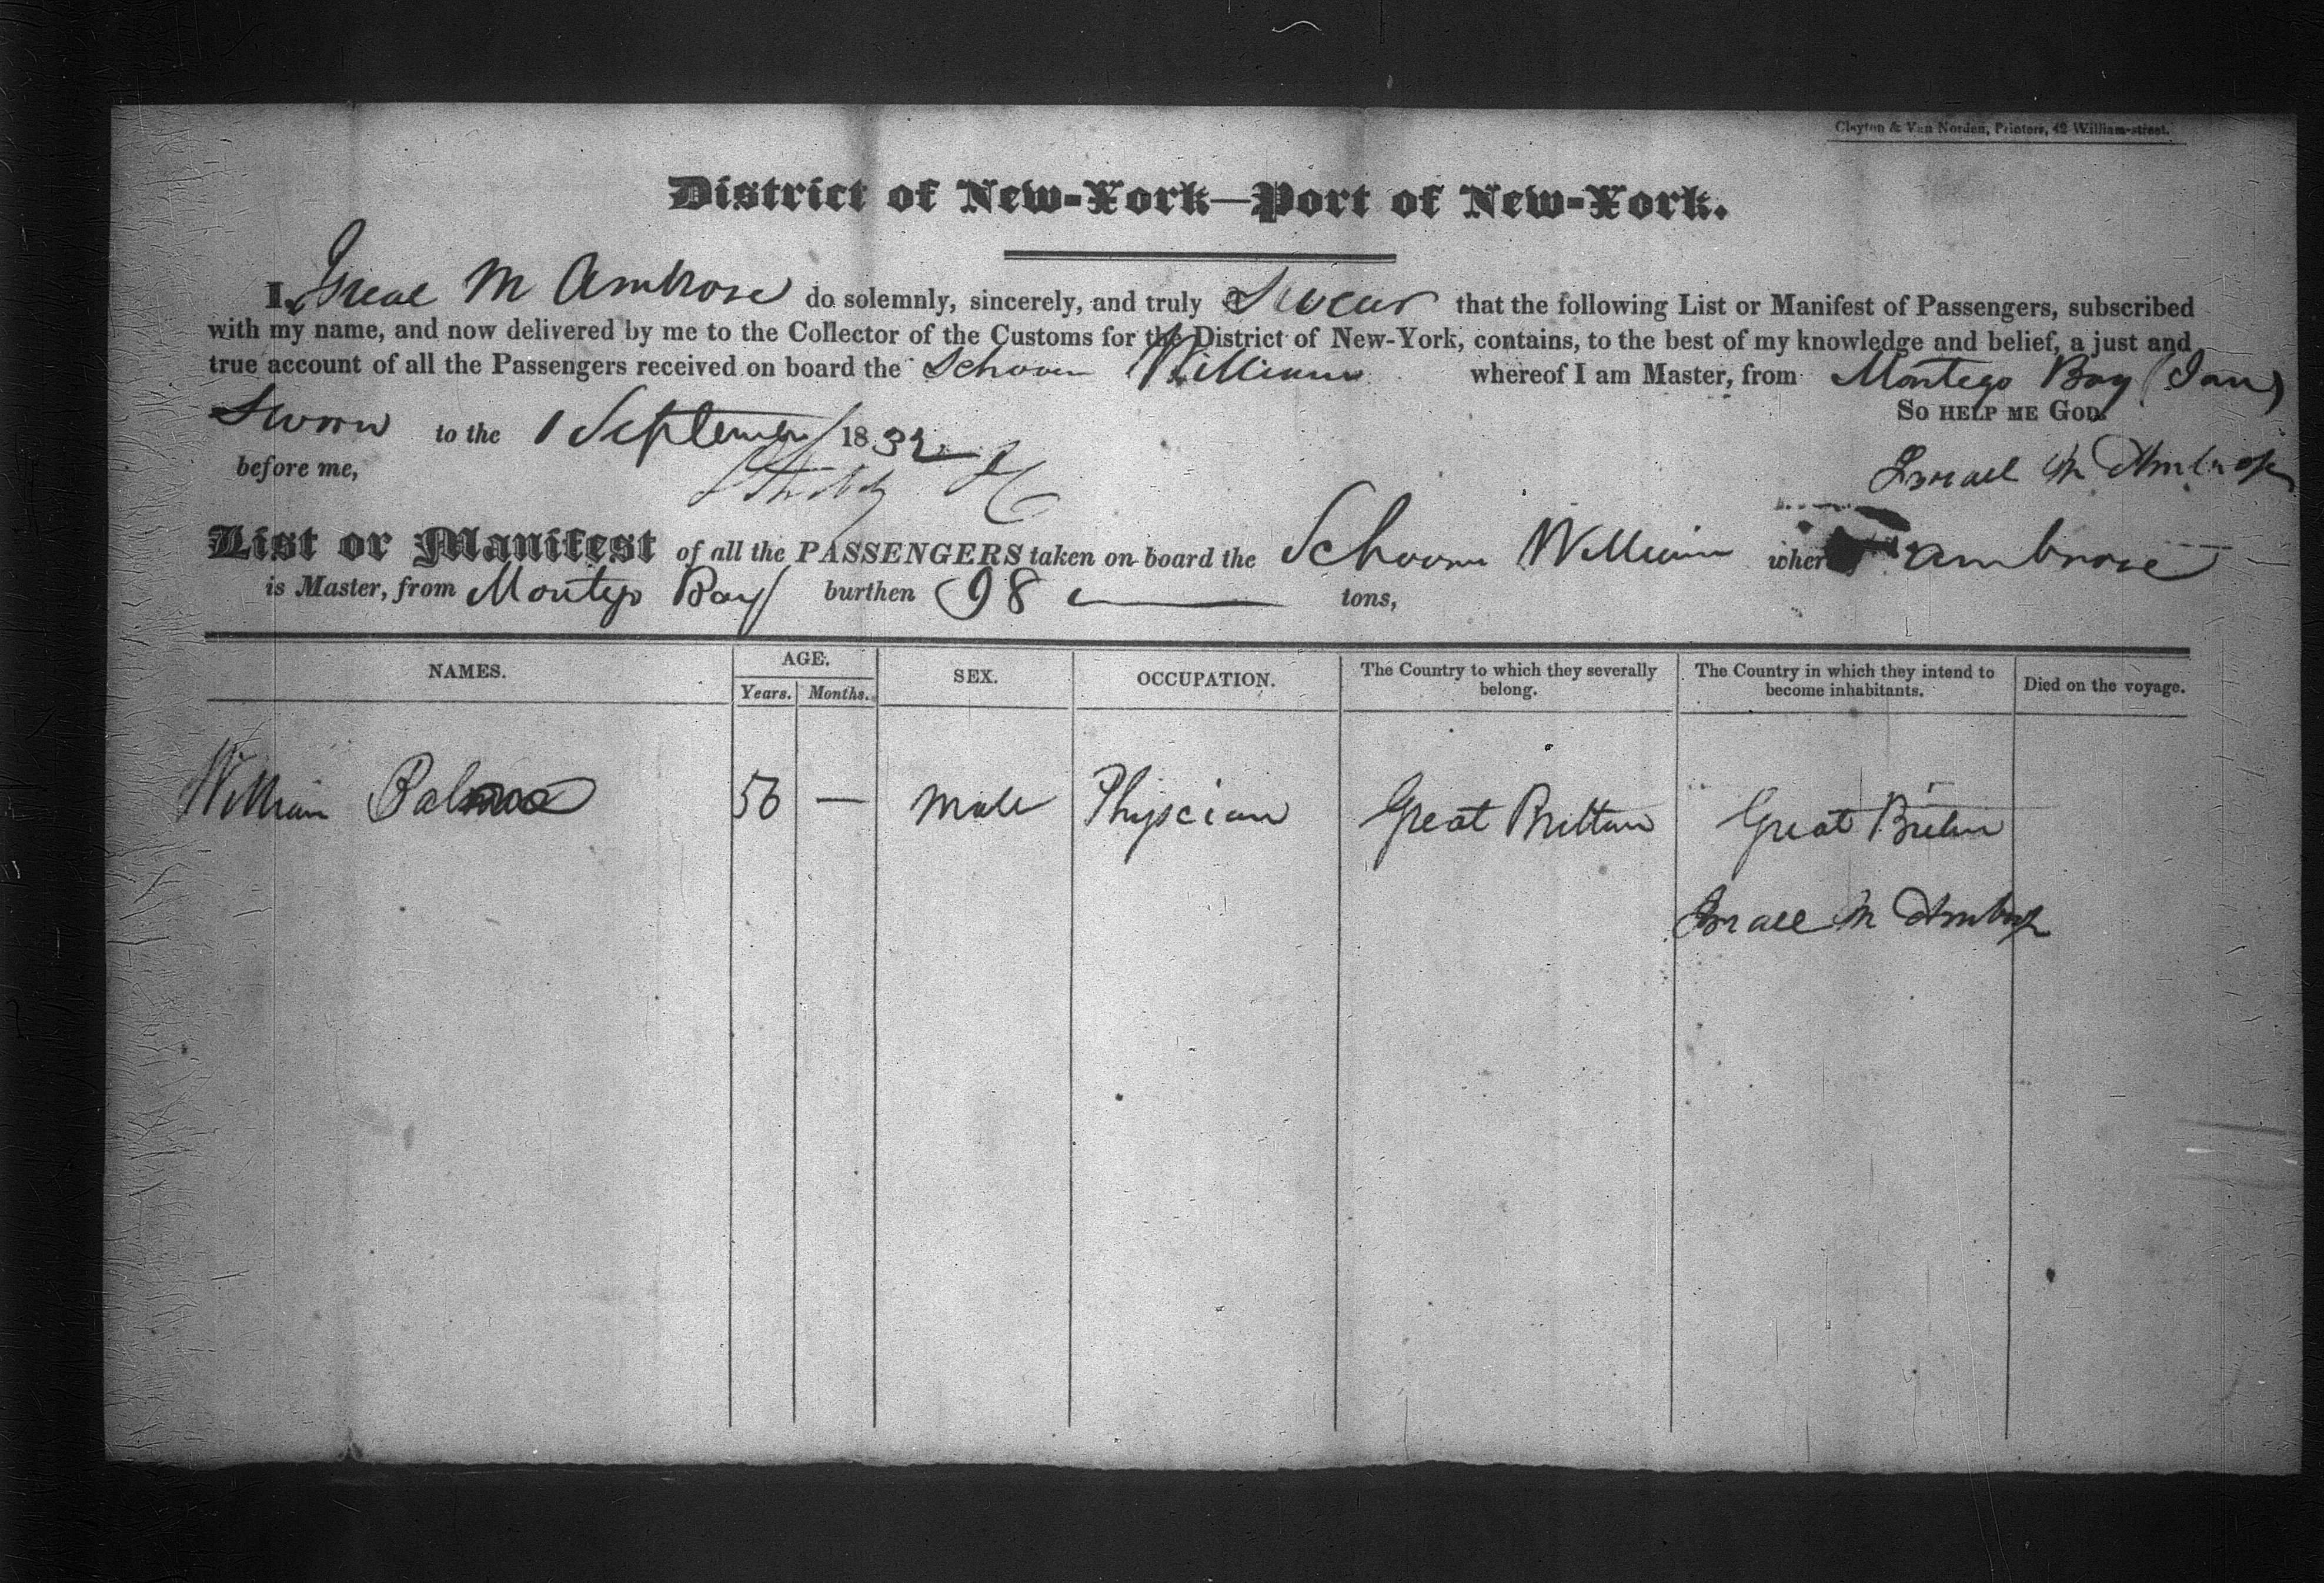 Clayton & Van Norden, Printers, 42 William-street.
District of New-York—Port of New-York.
I, Israel M Ambrose do solemnly, sincerely, and truly Swear that the following List or Manifest of Passengers, subscribed
with my name, and now delivered by me to the Collector of the Customs for the District of New-York, contains, to the best of my knowledge and belief, a just and
true account of all the Passengers received on board the Schooner William whereof I am Master, from Montego Bay (Jam)
So HELP ME GOD.
Sworn to the 1 September 1832
before me,
Israel M Ambrose
List or Manifest of all the PASSENGERS taken on board the Schooner William whereof Ambrose
is Master, from Montego Bay burthen 98 tons,
NAMES. AGE. SEX. OCCUPATION. The Country to which they severally belong. The Country in which they intend to become inhabitants. Died on the voyage.
Years. Months.
William 56 — Male Physcian Great Brittan Great Britain
Israel M Ambrose